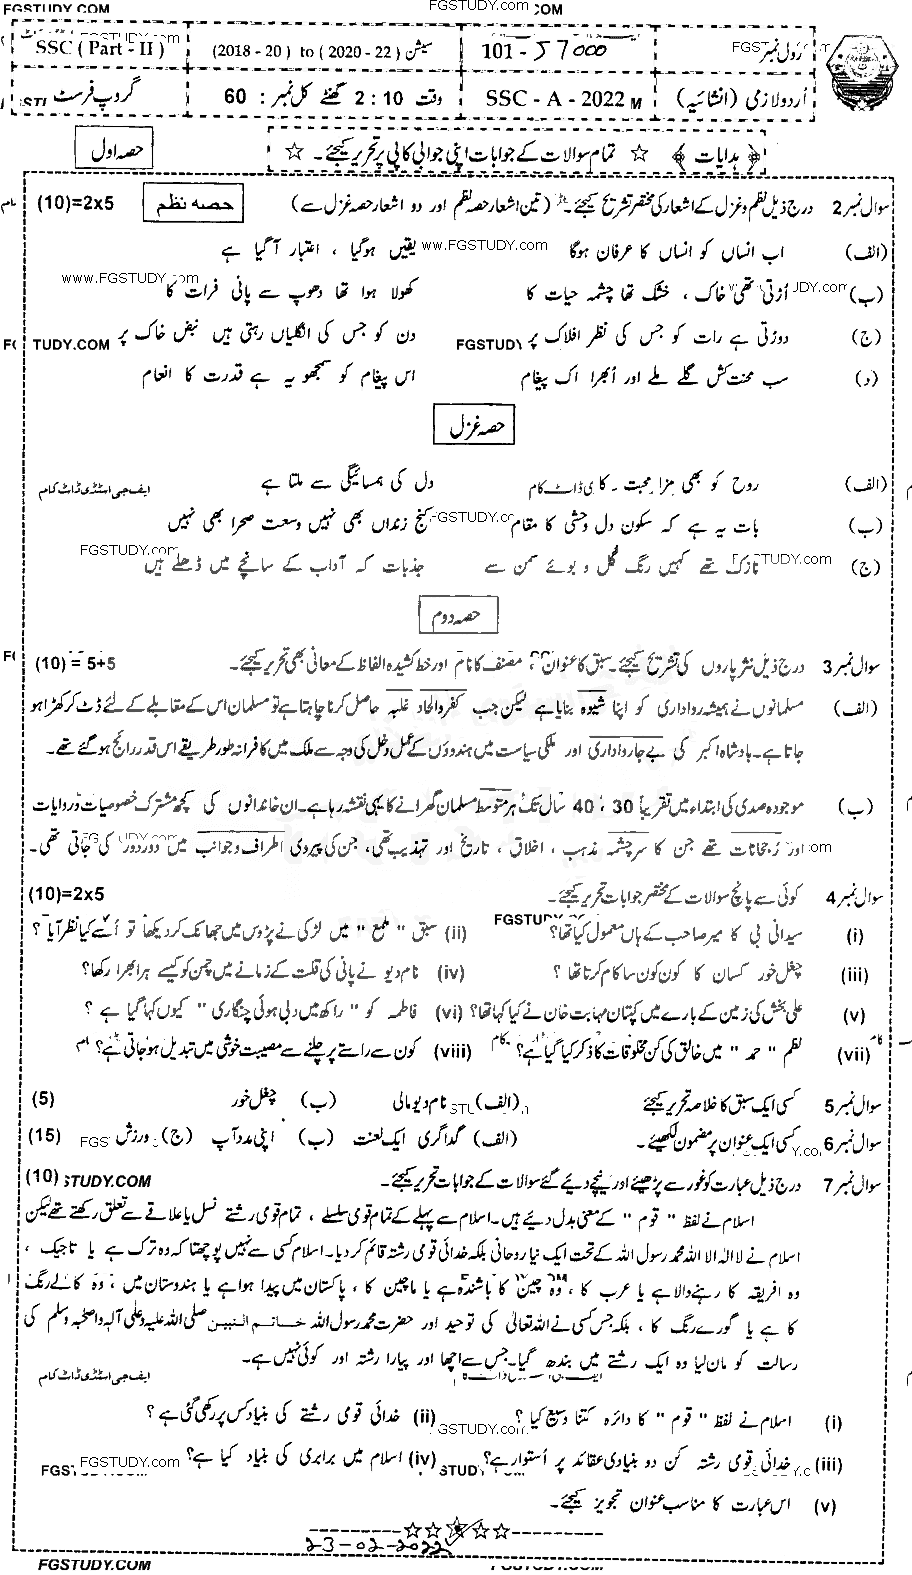 FGSTUDY.COM FGSTUDY.com .COM
رول نمبر 101 - 57000 سیشن (2018 - 20) to (2020 - 22) SSC (Part - II)
اُردو لازمی (انشائیہ) SSC - A - 2022 M وقت 2 : 10 گھنٹے کل نمبر : 60 گروپ فرسٹ
﴿ ہدایات ﴾ ☆ تمام سوالات کے جوابات اپنی جوابی کاپی پر تحریر کیجئے۔ ☆ حصہ اول
سوال نمبر 2 درج ذیل نظم و غزل کے اشعار کی مختصر تشریح کیجئے۔ (تین اشعار حصہ نظم اور دو اشعار حصہ غزل سے) حصہ نظم (10)=2x5
(الف) اب انساں کو انساں کا عرفان ہوگا یقیں ہوگیا ، اعتبار آگیا ہے
(ب) اُڑتی تھی خاک ، خشک تھا چشمہ حیات کا کھولا ہوا تھا دھوپ سے پانی فرات کا
(ج) دوڑتی ہے رات کو جس کی نظر افلاک پر دن کو جس کی انگلیاں رہتی ہیں نبض خاک پر
(د) سب محنت کش گلے ملے اور اُبھرا اک پیغام اس پیغام کو سمجھو یہ ہے قدرت کا انعام
حصہ غزل
(الف) روح کو بھی مزا محبت کا دل کی ہمسائیگی سے ملتا ہے
(ب) بات یہ ہے کہ سکون دل وحشی کا مقام کنج زنداں بھی نہیں وسعت صحرا بھی نہیں
(ج) نازک تھے کہیں رنگ گل و بوئے سمن سے جذبات کہ آداب کے سانچے میں ڈھلے ہیں
حصہ دوم
سوال نمبر 3 درج ذیل نثر پاروں کی تشریح کیجئے۔ سبق کا عنوان ، مصنف کا نام اور خط کشیدہ الفاظ کے معانی بھی تحریر کیجئے۔ (10) = 5+5
(الف) مسلمانوں نے ہمیشہ رواداری کو اپنا شیوہ بنایا ہے لیکن جب کفر و الحاد غلبہ حاصل کرنا چاہتا ہے تو مسلمان اس کے مقابلے کے لئے ڈٹ کر کھڑا ہو
جاتا ہے۔ بادشاہ اکبر کی بے جا رواداری اور ملکی سیاست میں ہندوؤں کے عمل دخل کی وجہ سے ملک میں کافرانہ طور طریقے اس قدر رائج ہو گئے تھے۔
(ب) موجودہ صدی کی ابتداء میں تقریباً 30 ، 40 سال تک ہر متوسط مسلمان گھرانے کا یہی نقشہ رہا ہے۔ ان خاندانوں کی کچھ مشترک خصوصیات و روایات
اور رُجحانات تھے جن کا سرچشمہ مذہب ، اخلاق ، تاریخ اور تہذیب تھی، جن کی پیروی اطراف و جوانب میں دور دور کی جاتی تھی۔
سوال نمبر 4 کوئی سے پانچ سوالات کے مختصر جوابات تحریر کیجئے۔ (10)=2x5
(i) سیدانی بی کا میر صاحب کے ہاں معمول کیا تھا؟ (ii) سبق " ملمع " میں لڑکی نے پڑوس میں جھانک کر دیکھا تو اُسے کیا نظر آیا ؟
(iii) چغل خور کسان کا کون کون سا کام کرتا تھا ؟ (iv) نام دیو نے پانی کی قلت کے زمانے میں چمن کو کیسے ہرا بھرا رکھا؟
(v) علی بخش کی زمین کے بارے میں کپتان مہابت خان نے کیا کہا تھا؟ (vi) فاطمہ کو " راکھ میں دبی ہوئی چنگاری " کیوں کہا گیا ہے ؟
(vii) نظم " حمد " میں خالق کی کن مخلوقات کا ذکر کیا گیا ہے؟ (viii) کون سے راستے پر چلنے سے مصیبت خوشی میں تبدیل ہو جاتی ہے؟
سوال نمبر 5 کسی ایک سبق کا خلاصہ تحریر کیجئے (الف) نام دیو مالی (ب) چغل خور (5)
سوال نمبر 6 کسی ایک عنوان پر مضمون لکھیئے۔ (الف) گداگری ایک لعنت (ب) اپنی مدد آپ (ج) ورزش (15)
سوال نمبر 7 درج ذیل عبارت کو غور سے پڑھیئے اور نیچے دیئے گئے سوالات کے جوابات تحریر کیجئے۔ (10)
اسلام نے لفظ " قوم " کے معنی بدل دیئے ہیں۔ اسلام سے پہلے کے تمام قومی سلسلے ، تمام قومی رشتے نسل یا علاقے سے تعلق رکھتے تھے لیکن
اسلام نے لا الٰہ الا اللہ محمد رسول اللہ کے تحت ایک نیا روحانی بلکہ خدائی قومی رشتہ قائم کر دیا۔ اسلام کسی سے نہیں پوچھتا کہ وہ ترک ہے یا تاجیک ،
وہ افریقہ کا رہنے والا ہے یا عرب کا ، وہ چین کا باشندہ ہے یا ماچین کا ، پاکستان میں پیدا ہوا ہے یا ہندوستان میں ، وہ کالے رنگ
کا ہے یا گورے رنگ کا ، بلکہ جس کسی نے اللہ تعالیٰ کی توحید اور حضرت محمد رسول اللہ خاتم النبین صلی اللہ علیہ وعلی آلہ واصحٰبہ وسلم کی
رسالت کو مان لیا وہ ایک رشتے میں بندھ گیا۔ جس سے اچھا اور پیارا رشتہ اور کوئی نہیں ہے۔
(i) اسلام نے لفظ " قوم " کا دائرہ کتنا وسیع کیا ؟ (ii) خدائی قومی رشتے کی بنیاد کس پر رکھی گئی ہے ؟
(iii) خدائی قومی رشتہ کن دو بنیادی عقائد پر اُستوار ہے؟ (iv) اسلام میں برابری کی بنیاد کیا ہے؟
(v) اس عبارت کا مناسب عنوان تجویز کیجئے۔
23-02-2022
FGSTUDY.COM